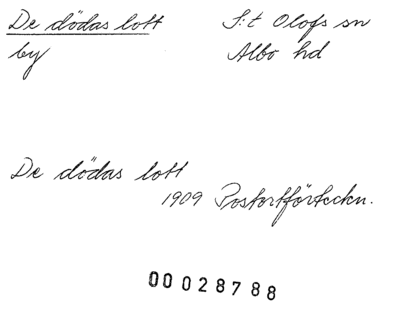 De dödas lott S:t Olofs sn
by Albo hd
De dödas lott
1909 Postortförteckn.
00028788